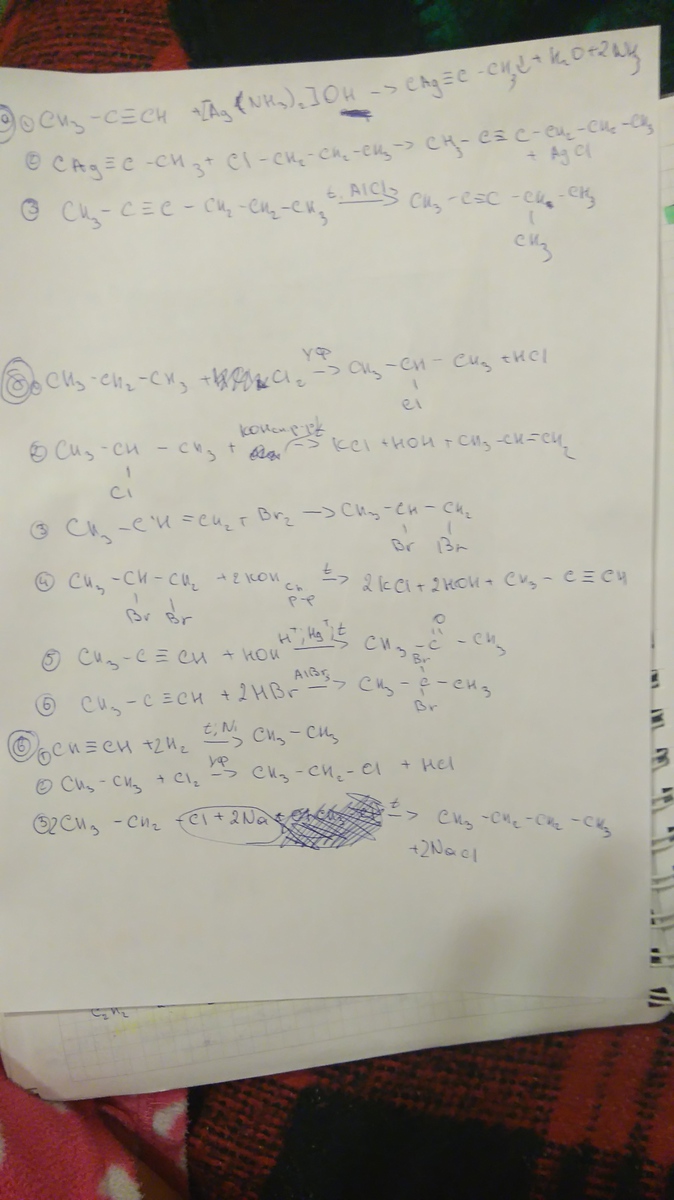 9) ① CH₃ – C≡CH + [Ag(NH₃)₂]OH → CAg≡C – CH₃↓ + H₂O + 2NH₃
② CAg≡C – CH₃ + Cl – CH₂ – CH₂ – CH₃ → CH₃ – C≡C – CH₂ – CH₂ – CH₃
+ AgCl
③ CH₃ – C≡C – CH₂ – CH₂ – CH₃ t, AlCl₃ → CH₃ – C≡C – CH – CH₃
CH₃
8) ① CH₃ – CH₂ – CH₃ + Cl₂ уф → CH₃ – CH – CH₃ + HCl
Cl
② CH₃ – CH – CH₃ + KOH сп р-р t → KCl + HOH + CH₃ – CH=CH₂
Cl
③ CH₃ – CH = CH₂ + Br₂ → CH₃ – CH – CH₂
Br Br
④ CH₃ – CH – CH₂ + 2KOH сп р-р t → 2KCl + 2HOH + CH₃ – C≡CH
Br Br
⑤ CH₃ – C≡CH + HOH H⁺; Hg⁺; t → CH₃ – C – CH₃
O
⑥ CH₃ – C≡CH + 2HBr AlBr₃ → CH₃ – C – CH₃
Br
Br
6) ① CH≡CH + 2H₂ t, Ni → CH₃ – CH₃
② CH₃ – CH₃ + Cl₂ уф → CH₃ – CH₂ – Cl + HCl
③ 2CH₃ – CH₂ – Cl + 2Na t → CH₃ – CH₂ – CH₂ – CH₃
+ 2NaCl
C₂H₂